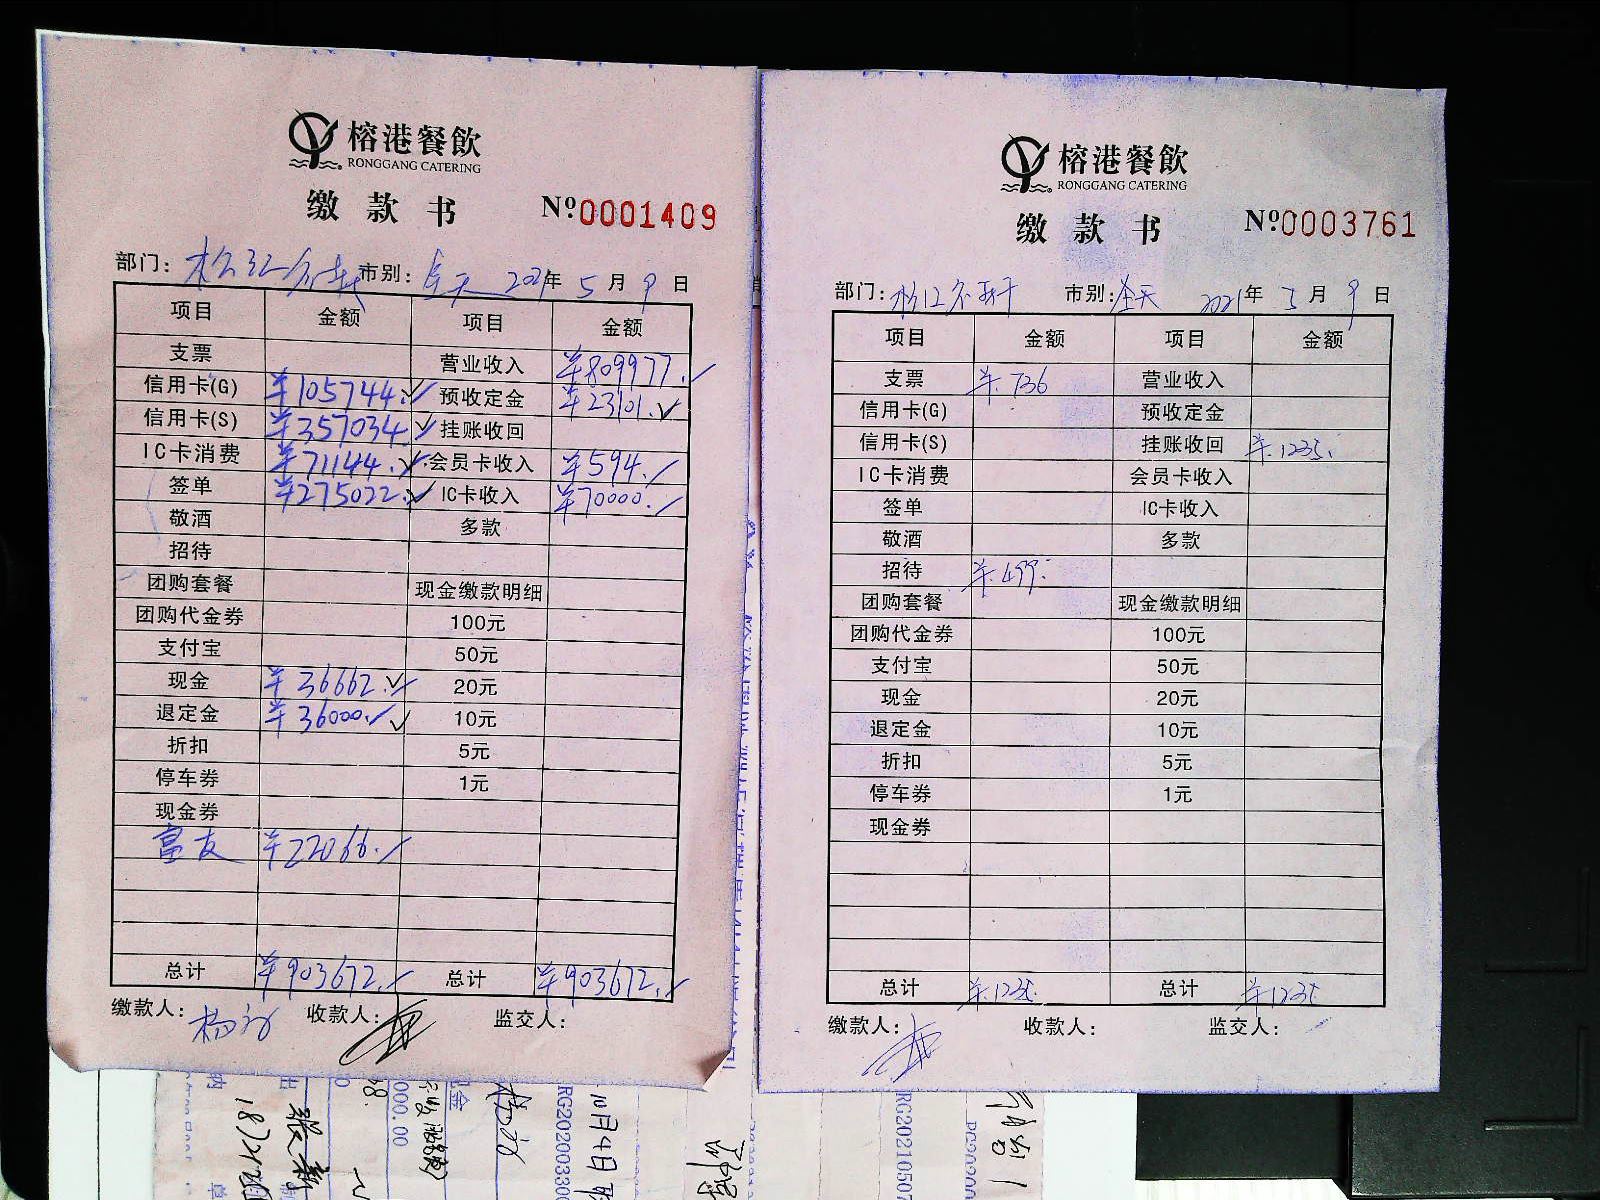 榕港餐飲
RONGGANG CATERING
缴款书 Nº0001409
部门: 松江 市别: 全天 2021年 5月 9日
项目 金额 项目 金额
支票 营业收入 ¥809977.
信用卡(G) ¥105744. 预收定金 ¥23101.
信用卡(S) ¥357034. 挂账收回
IC卡消费 ¥71144. 会员卡收入 ¥594.
签单 ¥275022. IC卡收入 ¥70000.
敬酒 多款
招待
团购套餐 现金缴款明细
团购代金券 100元
支付宝 50元
现金 ¥36662. 20元
退定金 ¥36000. 10元
折扣 5元
停车券 1元
现金券
富友 ¥22066.
总计 ¥903672. 总计 ¥903672.
缴款人: 收款人: 监交人:
榕港餐飲
RONGGANG CATERING
缴款书 Nº0003761
部门: 松江 市别: 全天 2021年 5月 9日
项目 金额 项目 金额
支票 ¥.736 营业收入
信用卡(G) 预收定金
信用卡(S) 挂账收回 ¥.1235.
IC卡消费 会员卡收入
签单 IC卡收入
敬酒 多款
招待 ¥.499.
团购套餐 现金缴款明细
团购代金券 100元
支付宝 50元
现金 20元
退定金 10元
折扣 5元
停车券 1元
现金券
总计 ¥.1235. 总计 ¥.1235
缴款人: 收款人: 监交人:
000.00
10月4日